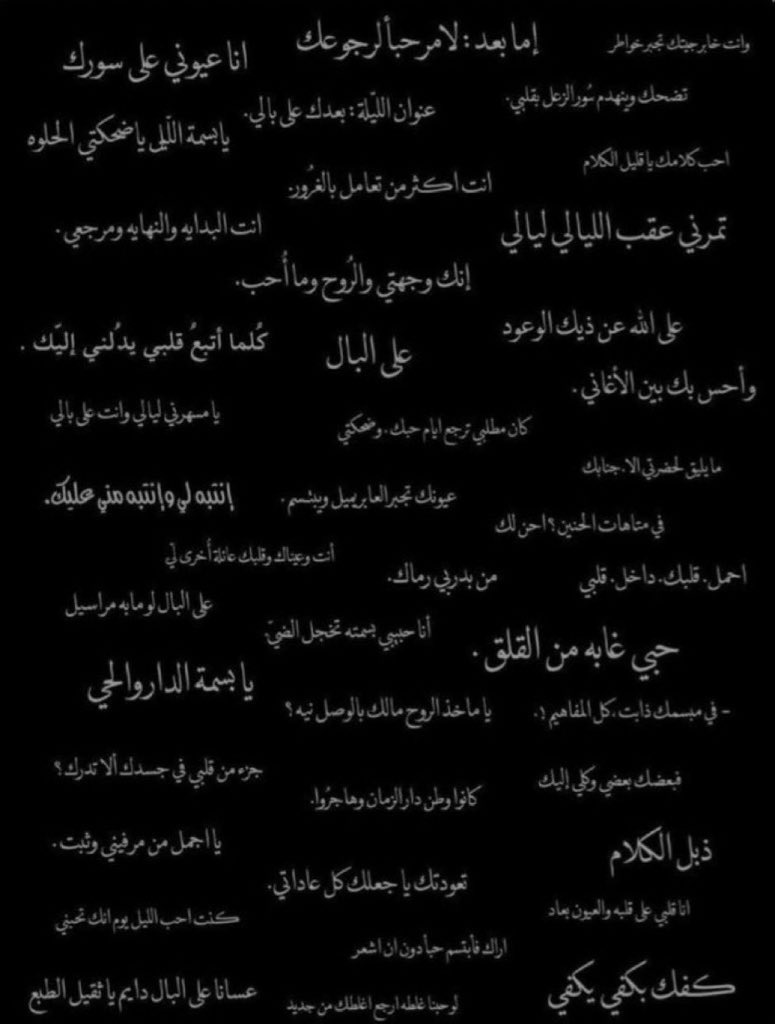 وانت خابر جيتك تجبر خواطر
إما بعد : لا مرحباً لرجوعك
انا عيوني على سورك
تضحك وينهدم سُور الزعل بقلبي.
عنوان الليّلة : بعدك على بالي.
يابسمة اللّيل ياضحكتي الحلوه
احب كلامك يا قليل الكلام
انت اكثر من تعامل بالغرُور.
تمرني عقب الليالي ليالي
انت البدايه والنهايه ومرجعي .
إنك وجهتي والرُوح وما أُحب.
على الله عن ذيك الوعود
على البال
كُلما أتبعُ قلبي يدُلني إليّك .
وأحس بك بين الأغاني .
يا مسهرني ليالي وانت على بالي
كان مطلبي ترجع ايام حبك . وضحكتي
ما يليق لحضرتي الا . جنابك
عيونك تجبر العابر يميل ويبتسم .
إنتبه لي وإنتبه مني عليك.
في متاهات الحنين ؟ احن لك
أنت وعيناك وقلبك عائلة أُخرى لّي
احمل . قلبك . داخل . قلبي
من بدربي رماك.
على البال لو مابه مراسيل
أنا حبيبي بسمته تخجل الضيّ.
حبي غابه من القلق .
يا بسمة الدار والحي
- في مبسمك ذابت ،كل المفاهيم ؟.
يا ماخذ الروح مالك بالوصل نيه ؟
جزء من قلبي في جسدك ألا تدرك ؟
فبعضك بعضي وكلي إليك
كانوا وطن دار الزمان وهاجرُوا.
يا اجمل من مرفيني وثبت .
ذبل الكلام
تعودتك يا جعلك كل عاداتي.
انا قلبي على قلبه والعيون بعاد
كنت احب الليل يوم انك تحبني
اراك فأبتسم حباً دون ان اشعر
كفك بكفي يكفي
عسانا على البال دايم يا ثقيل الطبع
لو حبنا غلطه ارجع اغلطك من جديد